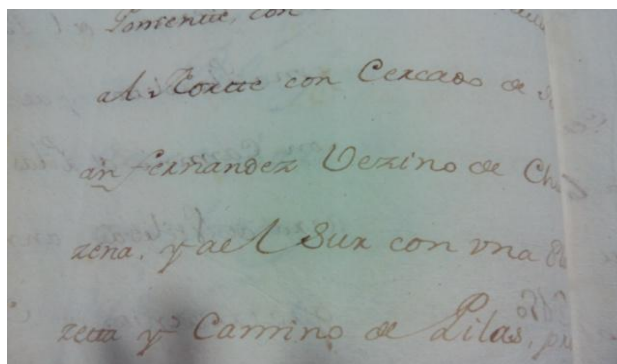 Poniente, con
al Nortte con Cercado de
an fernandez Vezino de Ch
zena. y de el Sur con vna
zetta y Camino de Pilas,